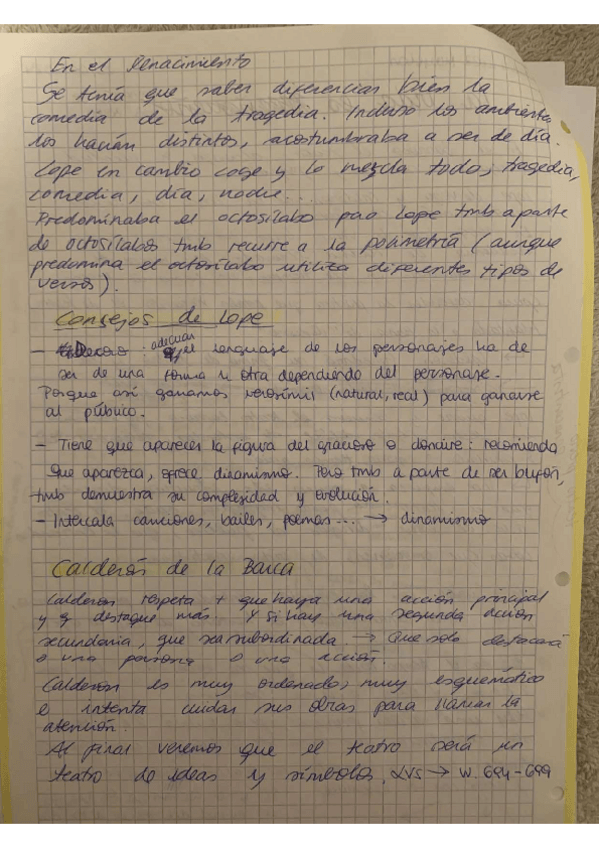 En el Renacimiento
Se tenía que saber diferencias bien la
comedia de la tragedia. Incluso los ambientes
los hacían distintos, acostumbraba a ser de día.
Lope en cambio coge y lo mezcla todo; tragedia,
comedia, día, noche...
Predominaba el octosílabo pero Lope tmb a parte
de octosílabos tmb recurre a la polimetría (aunque
predomina el octosílabo utiliza diferentes tipos de
versos).
Consejos de Lope
- Decoro: adecuar el lenguaje de los personajes ha de
ser de una forma u otra dependiendo del personaje.
Porque así ganamos verosimil (natural, real) para ganarse
al público.
- Tiene que aparecer la figura del gracioso o donaire: recomienda
que aparezca, ofrece dinamismo. Pero tmb a parte de ser bufón,
tmb demuestra su complejidad y evolución.
- Intercala canciones, bailes, poemas... → dinamismo
Calderón de la Barca
Calderón respeta + que haya una acción principal
y q destaque más. Y si hay una segunda acción
secundaria, que sea subordinada. → Que solo destacará
o una persona o una acción.
Calderón es muy ordenado; muy esquemático
e intenta cuidar sus obras para llamar la
atención.
Al final veremos que el teatro será un
teatro de ideas y símbolos. LVS → W. 694-699